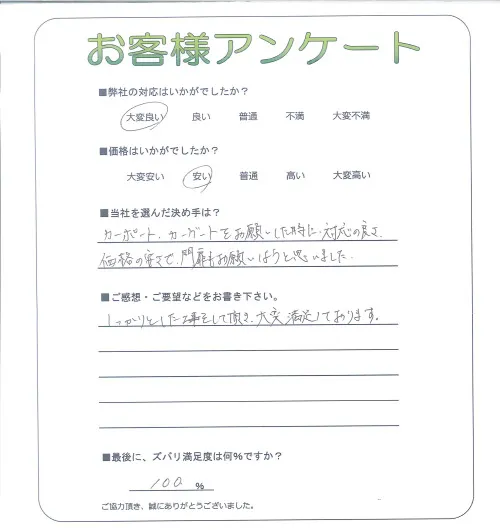 お客様アンケート
■弊社の対応はいかがでしたか？
大変良い 良い 普通 不満 大変不満
■価格はいかがでしたか？
大変安い 安い 普通 高い 大変高い
■当社を選んだ決め手は？
カーポート、カーゲートをお願いした時に、対応の良さ、
価格の安さで、門扉もお願いしようと思いました。
■ご感想・ご要望などをお書き下さい。
しっかりとした工事をして頂き、大変満足しております。
■最後に、ズバリ満足度は何％ですか？
100 ％
ご協力頂き、誠にありがとうございました。